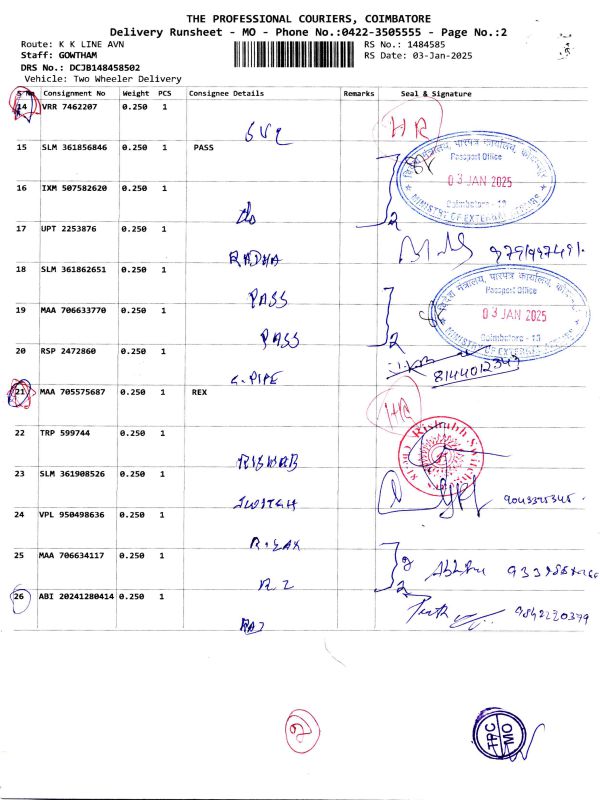 THE PROFESSIONAL COURIERS, COIMBATORE
Delivery Runsheet - MO - Phone No.:0422-3505555 - Page No.:2
Route: K K LINE AVN
RS No.: 1484585
Staff: GOWTHAM
RS Date: 03-Jan-2025
DRS No.: DCJB148458502
Vehicle: Two Wheeler Delivery
S No Consignment No Weight PCS Consignee Details Remarks Seal & Signature
14 VRR 7462207 0.250 1
HR
15 SLM 361856846 0.250 1 PASS
Passport Office
03 JAN 2025
Coimbatore - 18
MINISTRY OF EXTERNAL AFFAIRS
16 IXM 507582620 0.250 1
do
2
17 UPT 2253876 0.250 1
RADHA
18 SLM 361862651 0.250 1
PASS
Passport Office
03 JAN 2025
Coimbatore - 18
MINISTRY OF EXTERNAL AFFAIRS
19 MAA 706633770 0.250 1
PASS
2
20 RSP 2472860 0.250 1
8144012343
C. PIPE
21 MAA 705575687 0.250 1 REX
HR
22 TRP 599744 0.250 1
23 SLM 361908526 0.250 1
SWITCH
24 VPL 950498636 0.250 1
25 MAA 706634117 0.250 1
R 2
2
26 ABI 20241280414 0.250 1
9842220379
TPC
MO